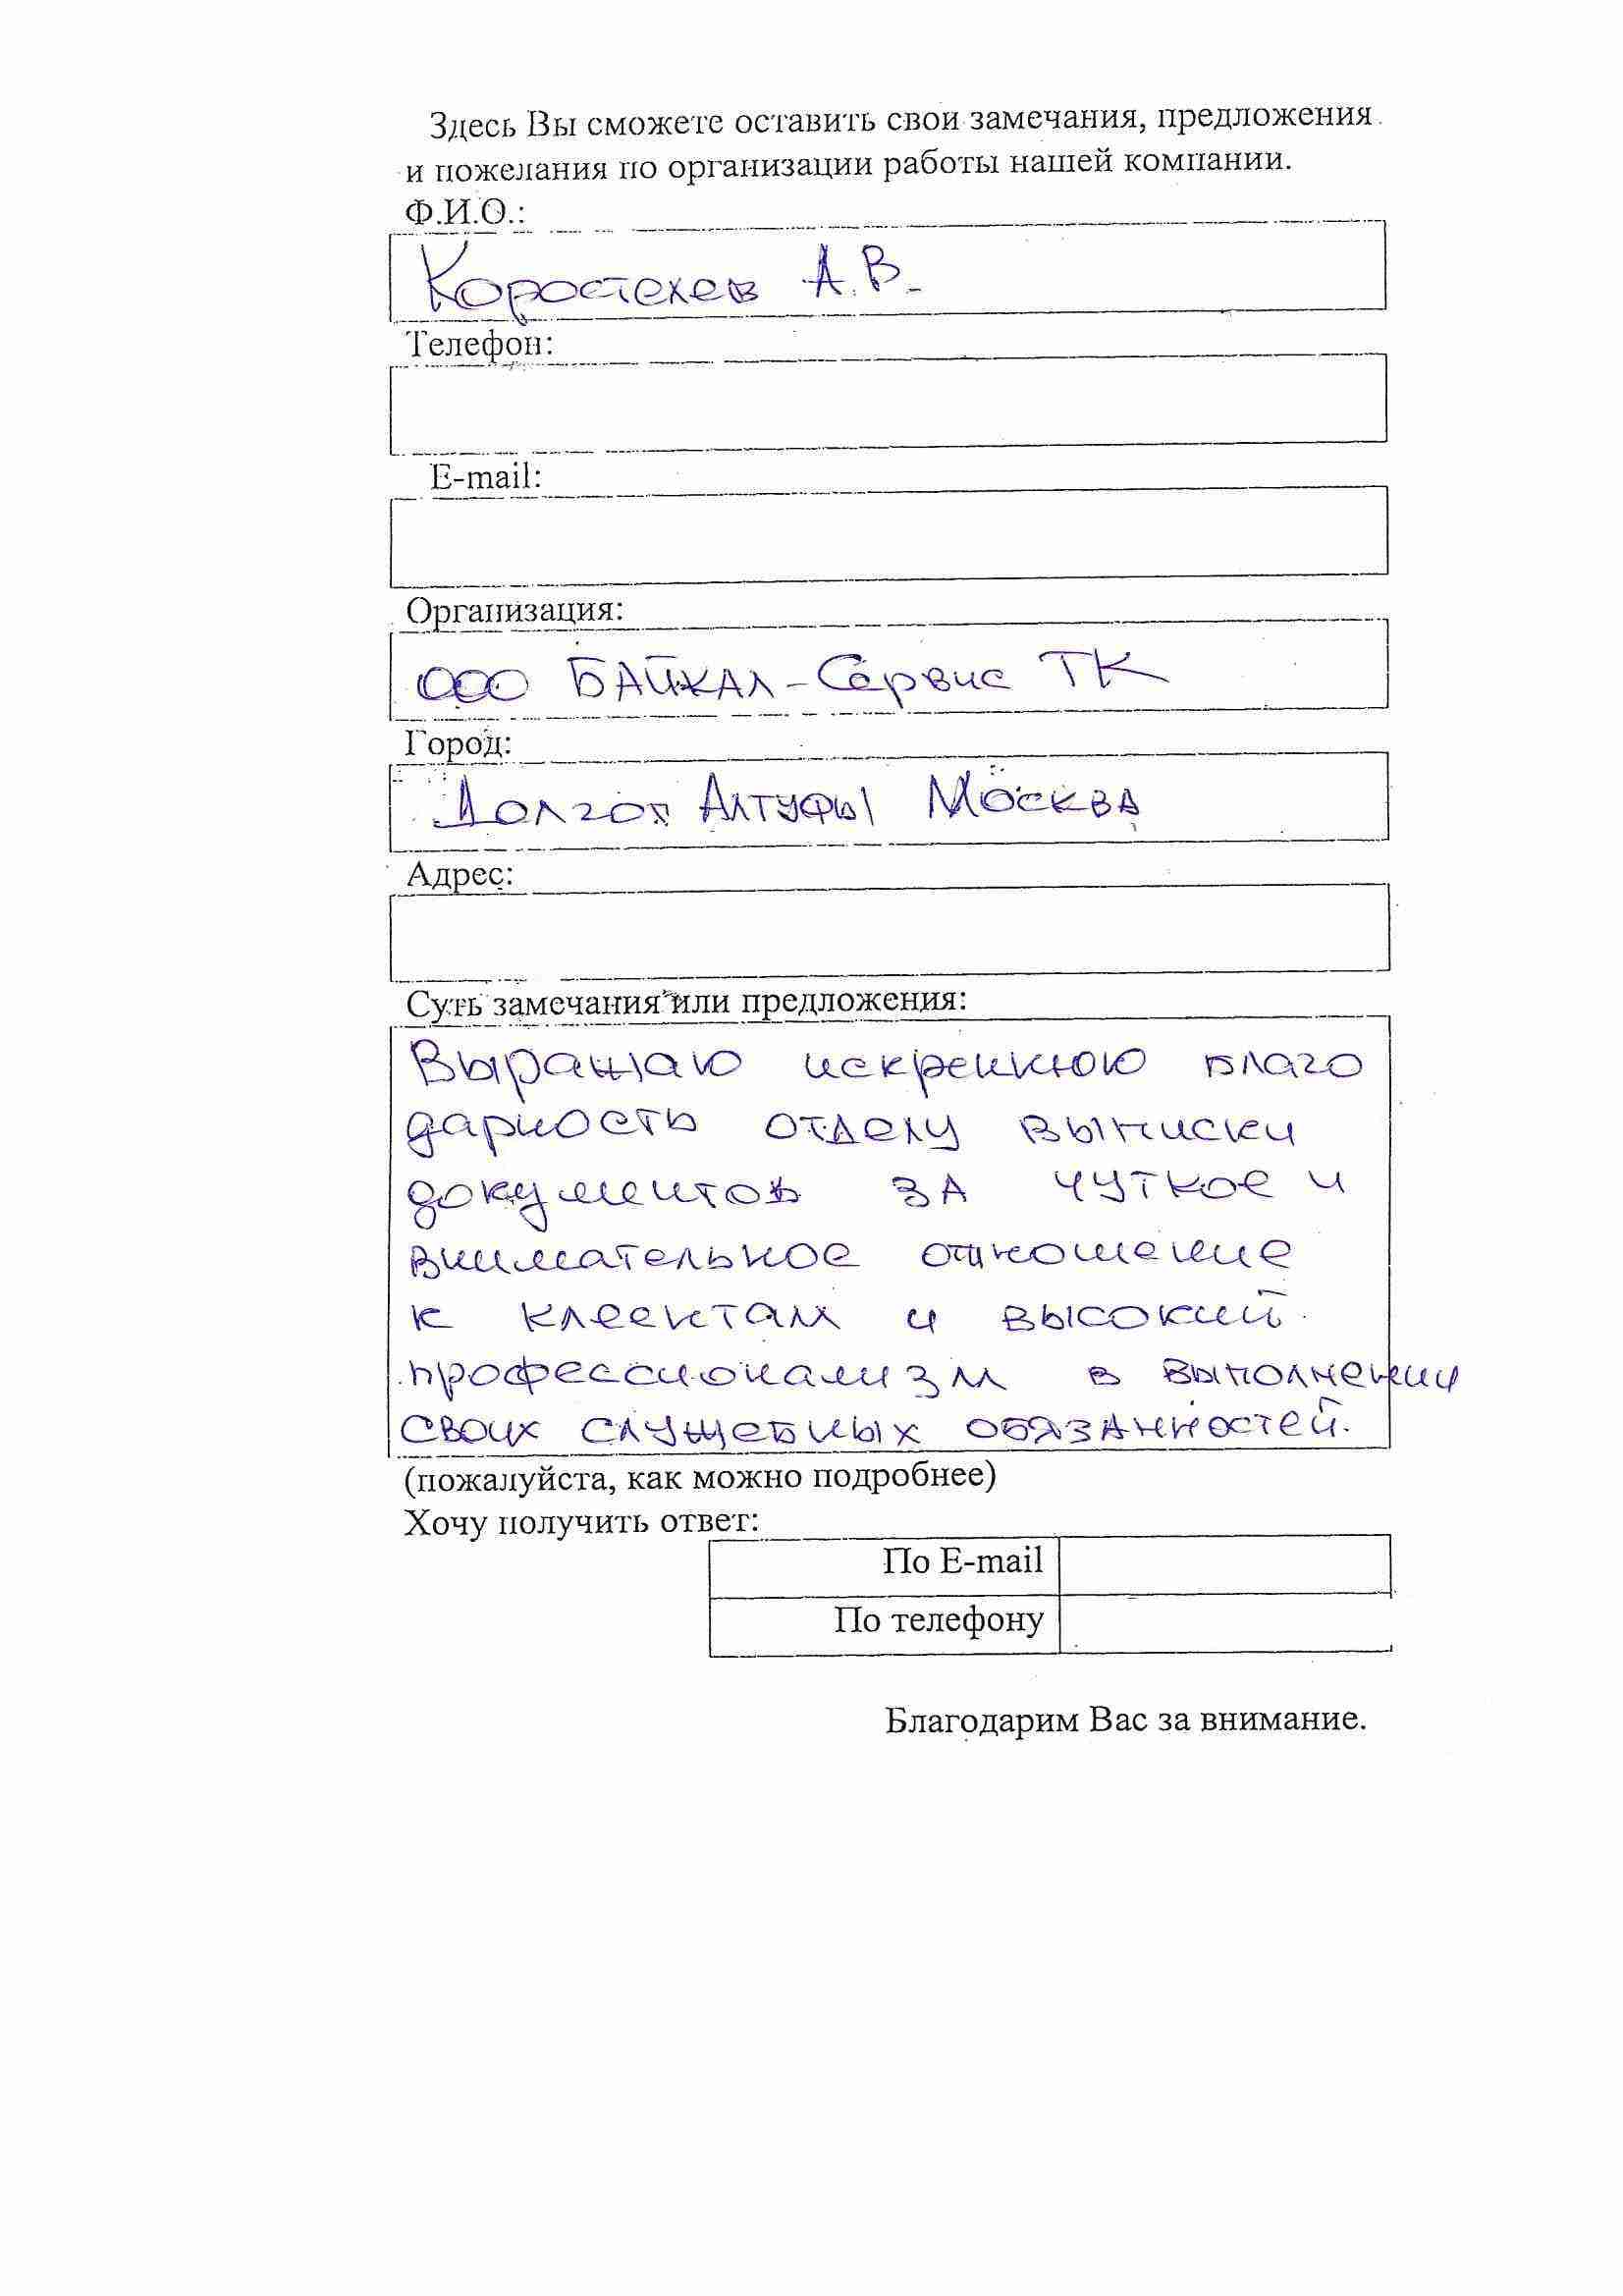 Здесь Вы сможете оставить свои замечания, предложения
и пожелания по организации работы нашей компании.
Ф.И.О.:
Коростелев А.В.
Телефон:
E-mail:
Организация:
ООО БАЙКАЛ-Сервис ТК
Город:
Долгоп Алтуфы Москва
Адрес:
Суть замечания или предложения:
Выражаю искреннюю благо
дарность отделу выписки
документов за чуткое и
внимательное отношение
к клеентам и высокий
профессионализм в выполнении
своих служебных обязанностей.
(пожалуйста, как можно подробнее)
Хочу получить ответ:
По E-mail
По телефону
Благодарим Вас за внимание.